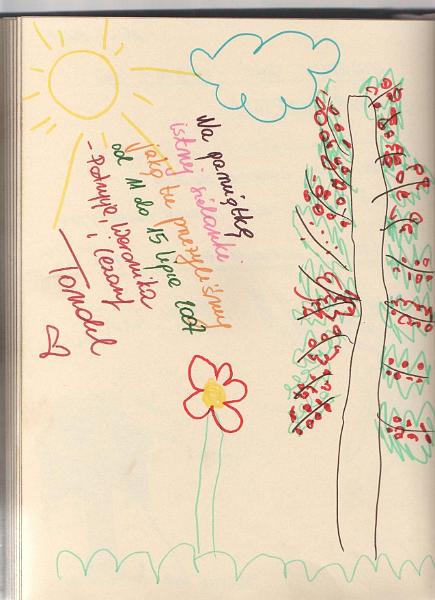 Na pamiątkę
istnej sielanki
jaką tu przeżyliśmy
od 11 do 15 lipca 2007
- Patrycja, Weronika
i Cezary